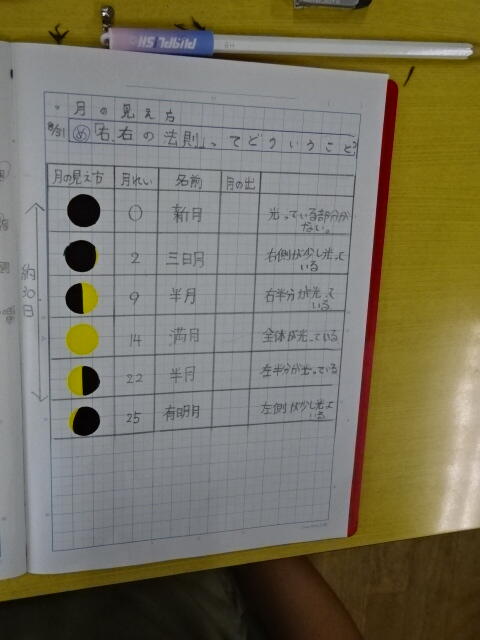 PUSHPULSH
。月の見え方
8/31 め 「右、右の法則」ってどういうこと?
月の見え方 月れい 名前 月の出
約30日
0 新月 光っている部分がない。
2 三日月 右側が少し光っている
9 半月 右半分が光っている
14 満月 全体が光っている
22 半月 左半分が光っている
25 有明月 左側が少し光っている